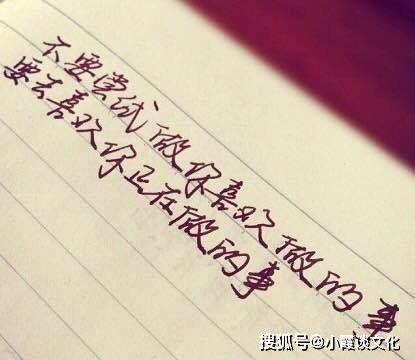 不要尝试做你喜欢做的事
要去喜欢你正在做的事
搜狐号@小霞谈文化